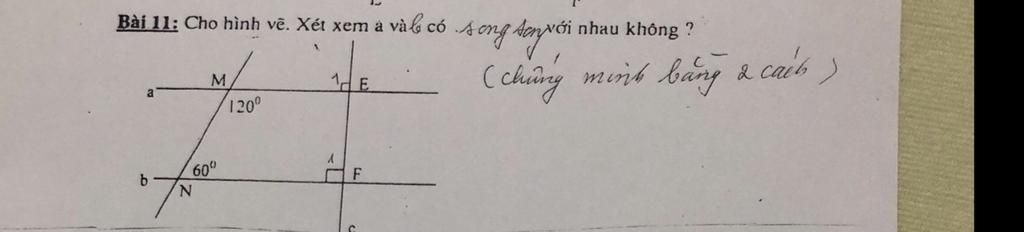 Bài 11: Cho hình vẽ. Xét xem a và b có song song với nhau không ?
(chứng minh bằng 2 cách)
M 1 E
a
120⁰
1
60⁰ F
b
N
c